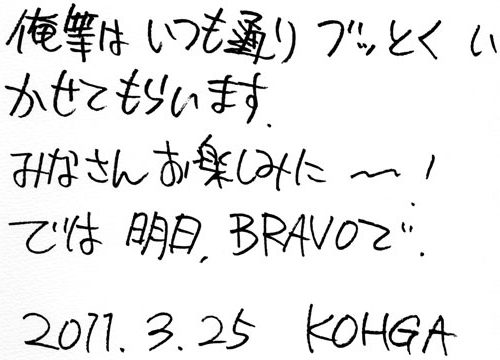 俺等は いつも通り ブッとく い
かせてもらいます.
みなさんお楽しみに 〜!
では 明日, BRAVOで.
2011. 3. 25 KOHGA